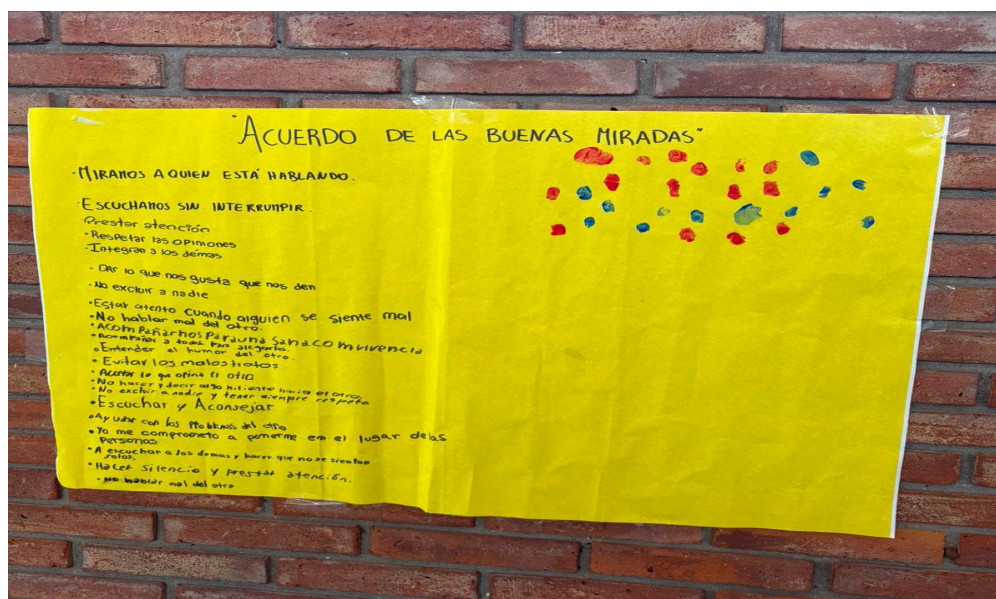 "ACUERDO DE LAS BUENAS MIRADAS"
·MIRAMOS A QUIEN ESTÁ HABLANDO.
·ESCUCHAMOS SIN INTERRUMPIR.
·Prestar atención
·Respetar las opiniones
·Integrar a los demas
·Dar lo que nos gusta que nos den
·No excluir a nadie
·Estar atento cuando alguien se siente mal
·No hablar mal del otro.
·Acompañarnos para una sana comvivencia
·Acompañar a todos para alegrarlo.
·Entender el humor del otro.
·Evitar los malos tratos
·Aceptar lo que opina el otro
·No hacer y decir algo hiriente hacia el otro.
·No excluir a nadie y tener siempre respeto
·Escuchar y Aconsejar
·Ayudar con los Problemas del otro
·Yo me comprometo a ponerme en el lugar de las
personas
·A escuchar a los demas y hacer que no se sientan
solos.
·Hacer silencio y prestar atención.
·No hablar mal del otro